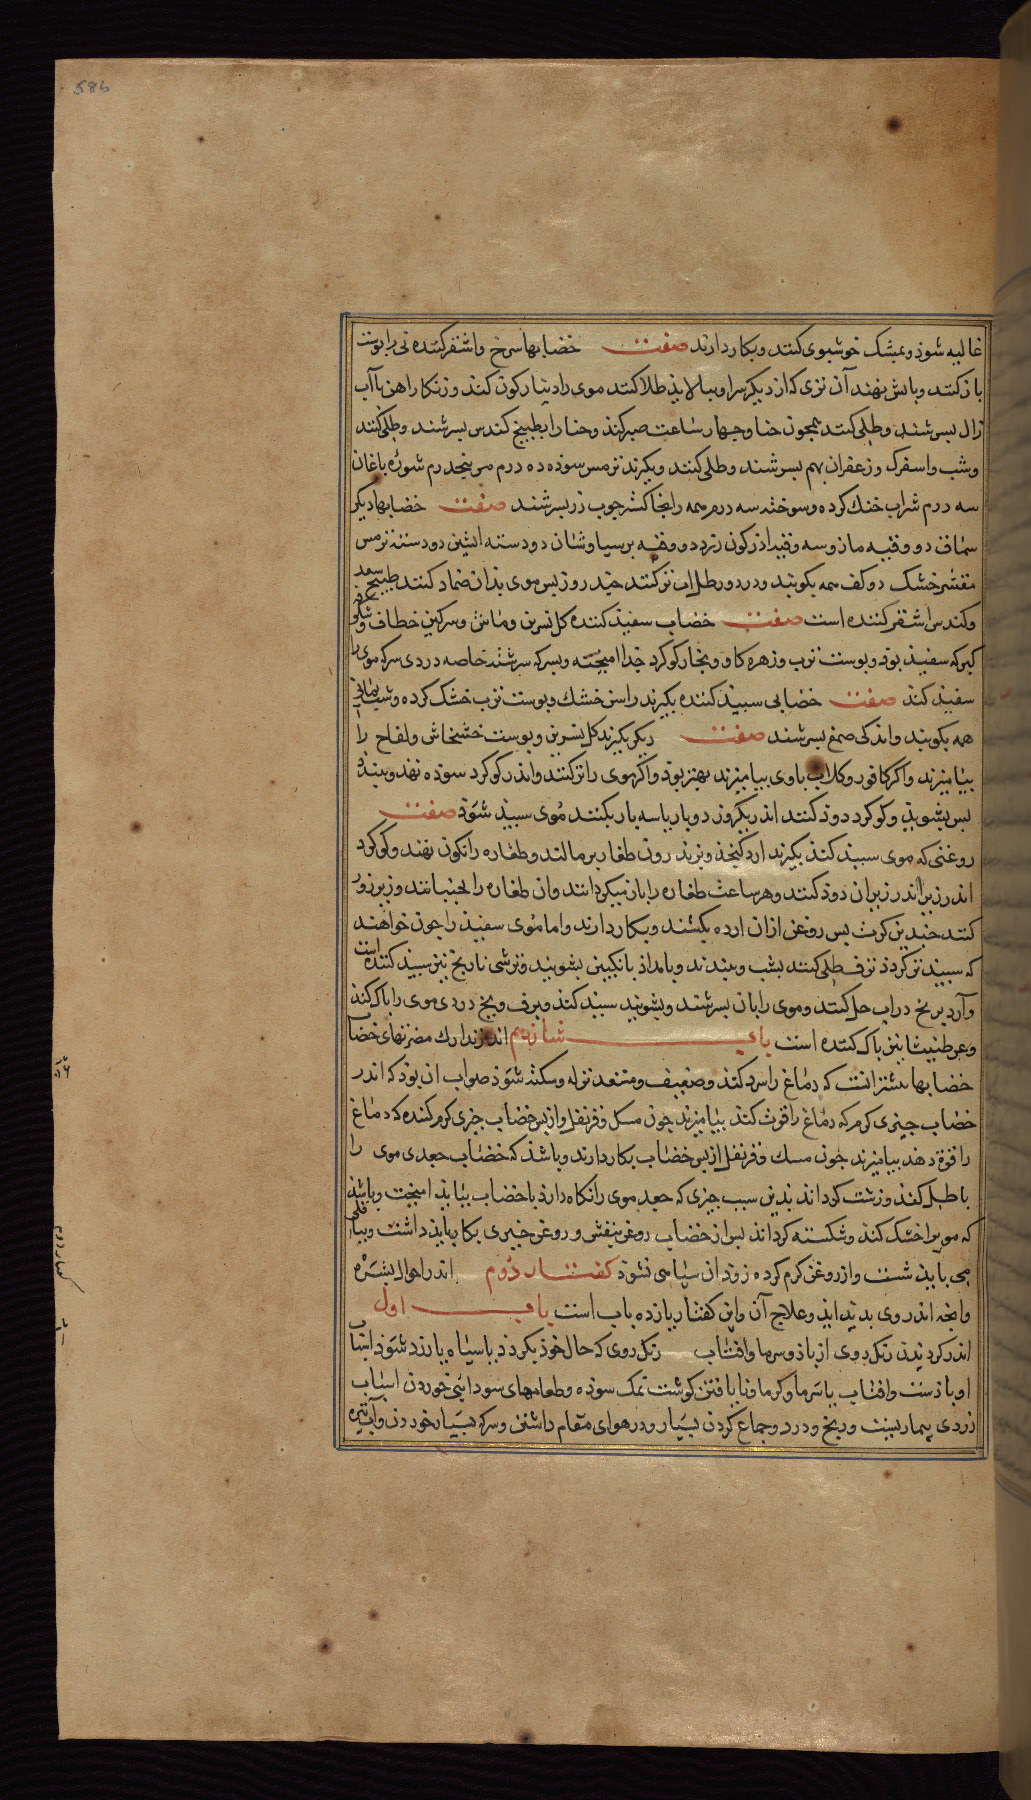 586
غالیه شوذ و بمشک خوشبوی کنند و بکار دارند صفت خضابها سرخ و اشقر کننده نی را پوست
باز کنند و باتش نهند آن تری که از دیکر سر او ببالاید طلا کنند موی را دینار کون کنذ و زنکار اهن با آب
زال بسرشند و طلی کنند همجون حنا و جهار ساعت صبر کنند و حنا را بطبیخ کندس بسرشند و طلی کنند
وشب و اسفرک و زعفران بهم بسرشند و طلی کنند و بکیرند ترمس سوذه ده درم مر بنجدرم شوره
سه درم شراب خنك کرده و سوخته سه درم همه را بخاکستر جوب رز بسرشند صفت خضابها دیکر
سماق دو وقیه مازو سه وقیه اذرکون زرد دو وقیه برسیاوشان دو دسته افشین دو دسته ترمس
مقشر خشک دو کف همه بکوبند و در دو رطل اب تر کنند جند روز بس موی بذان ضماد کنند طبیخ سعد
و کندس اشقر کننده است صفت خضاب سفیذ کننده کل نسرین و ماش و سرکین خطاف و
کبر که سفیذ بوذ و بوست ترب و زهره کاو و بخار کوکرد جذا امیخته و بسرکه سرشته خاصه دردی سرکه موی را
سفیذ کند صفت خضابی سبیذ کننده بکیرند راسن خشك و بوست ترب خشک کرده و شب یمانی
همه بکوبند و اندکی صمغ بسرشند صفت دیکر بکیرند کل نسرین و بوست خشخاش ولفاح را
بیامیزند و اکر کافور و کلاب باوی بیامیزند بهتر بوذ و اکر موی را تر کنند و اندر کوکرد سوذه نهند و ببندند
بس بشویند و کوکرد دوذ کنند اندر یکروز دو بار یا سه بار بکنند موی سبیذ شوذ صفت
روغنی که موی سبیذ کند بکیرند ارد کنجذ و برند رون طغار برمالند و طغاره را نکون نهند و کوکرد
اندر زیر اندر زیر ان دوذ کنند و هر ساعت طغاره را باز میکردانند وان طغاره را بجنبانند و زیر زور
کنند جندین کرت بس روغن ازان ارده بکشند و بکار دارند و اما موی سفیذ را جون خواهند
که سبیذ تر کردذ ترف طلی کنند بشب و ببندند و بامداذ بانکبین بشویند و ترشی نارنج نیز سبیذ کننده است
و آرد برنج در اب حل کنند و موی را بان بسرشند و بشویند سبیذ کند و برف و یخ دردی موی را باک کند
و عرطنیثا نیز باک کننده است باب شانزدهم اندر تدارك مضرتهای خضاب
خضابها بیشتر انست که دماغ را سرد کند و ضعیف و مستعد نزله و سکته شوذ صواب ان بوذ که اندر
خضاب جیزی کرم که دماغ را قوت کند بیامیزند جون مسك و قرنفل و از بس خضاب جیزی کرم کننده که دماغ
را قوة دهذ بیامیزند جون مسك و قرنفل از بس خضاب بکار دارند و باشذ که خضاب جعدی موی را
باطل کند و زشت کرداند بدین سبب جیزی که جعد موی را نکاه دارذ با خضاب بباید امیخت و باشذ
که مویرا خشک کند و شکسته کرداند بس از خضاب روغن بنفش و روغن خیری بکار بباید داشت
می بایذ شست و از روغن کرم کرده زوذ از سیاهی نشوذ کفتار دوم اندر احوال بشره
و انجه اندر روی بدید ایذ و علاج آن و این کفتار یازده باب است باب اول
اندر کردیدن رنک روی از باذ و سرما و افتاب رنک روی که حال خوذ بکردذ یا سیاه یا زرد شوذ اسباب
او باذ سرد و افتاب یا سرما و کرما و نایافتن کوشت نمک سوذه و طعامهای سودایی خوردن اسباب
زردی بیماریست و رنج و درد و جماع کردن بسیار و در هوای مقام داشتن و سرکه بسیار خوردن و آب تیره
کفتار دوم